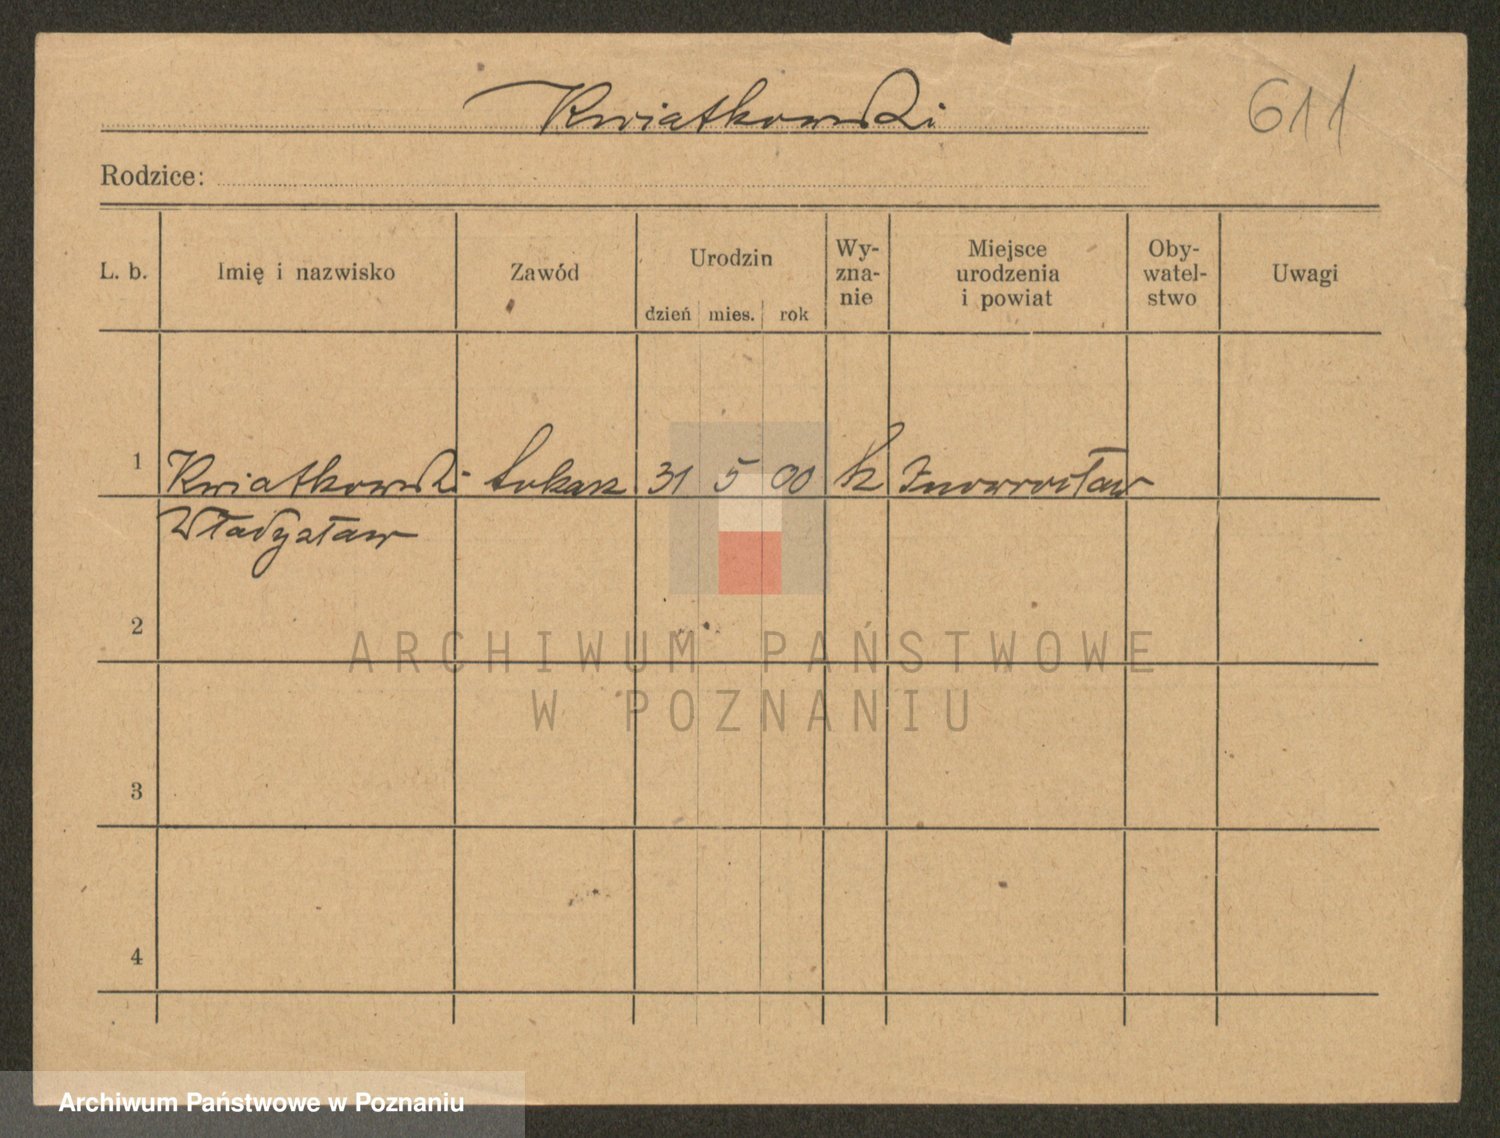 Kwiatkowski
611
Rodzice:
L. b. Imię i nazwisko Zawód Urodzin dzień mies. rok Wy-
zna-
nie Miejsce
urodzenia
i powiat Oby-
watel-
stwo Uwagi
1 Kwiatkowski tokarz 31 5 00 k Inowrocław
Władysław
2
3
4
ARCHIWUM PAŃSTWOWE
W POZNANIU
Archiwum Państwowe w Poznaniu